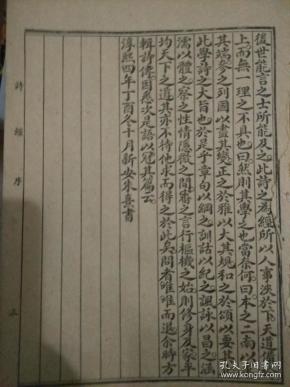 後世能言之士所能及之此詩之為經所以人事浹於下天道備於
上而無一理之不具也曰然則其學之也當奈何曰本之二南以求
其端參之列國以盡其變正之於雅以大其規和之於頌以要其止
此學詩之大旨也於是乎章句以綱之訓詁以紀之諷詠以昌之涵
濡以體之察之性情隱微之間審之言行樞機之始則修身及家平
均天下之道其亦不待他求而得之於此矣問者唯唯而退余時方
輯詩傳因悉次是語以冠其篇云
淳熙四年丁酉冬十月新安朱熹書
詩經序
三
孔夫子旧书网